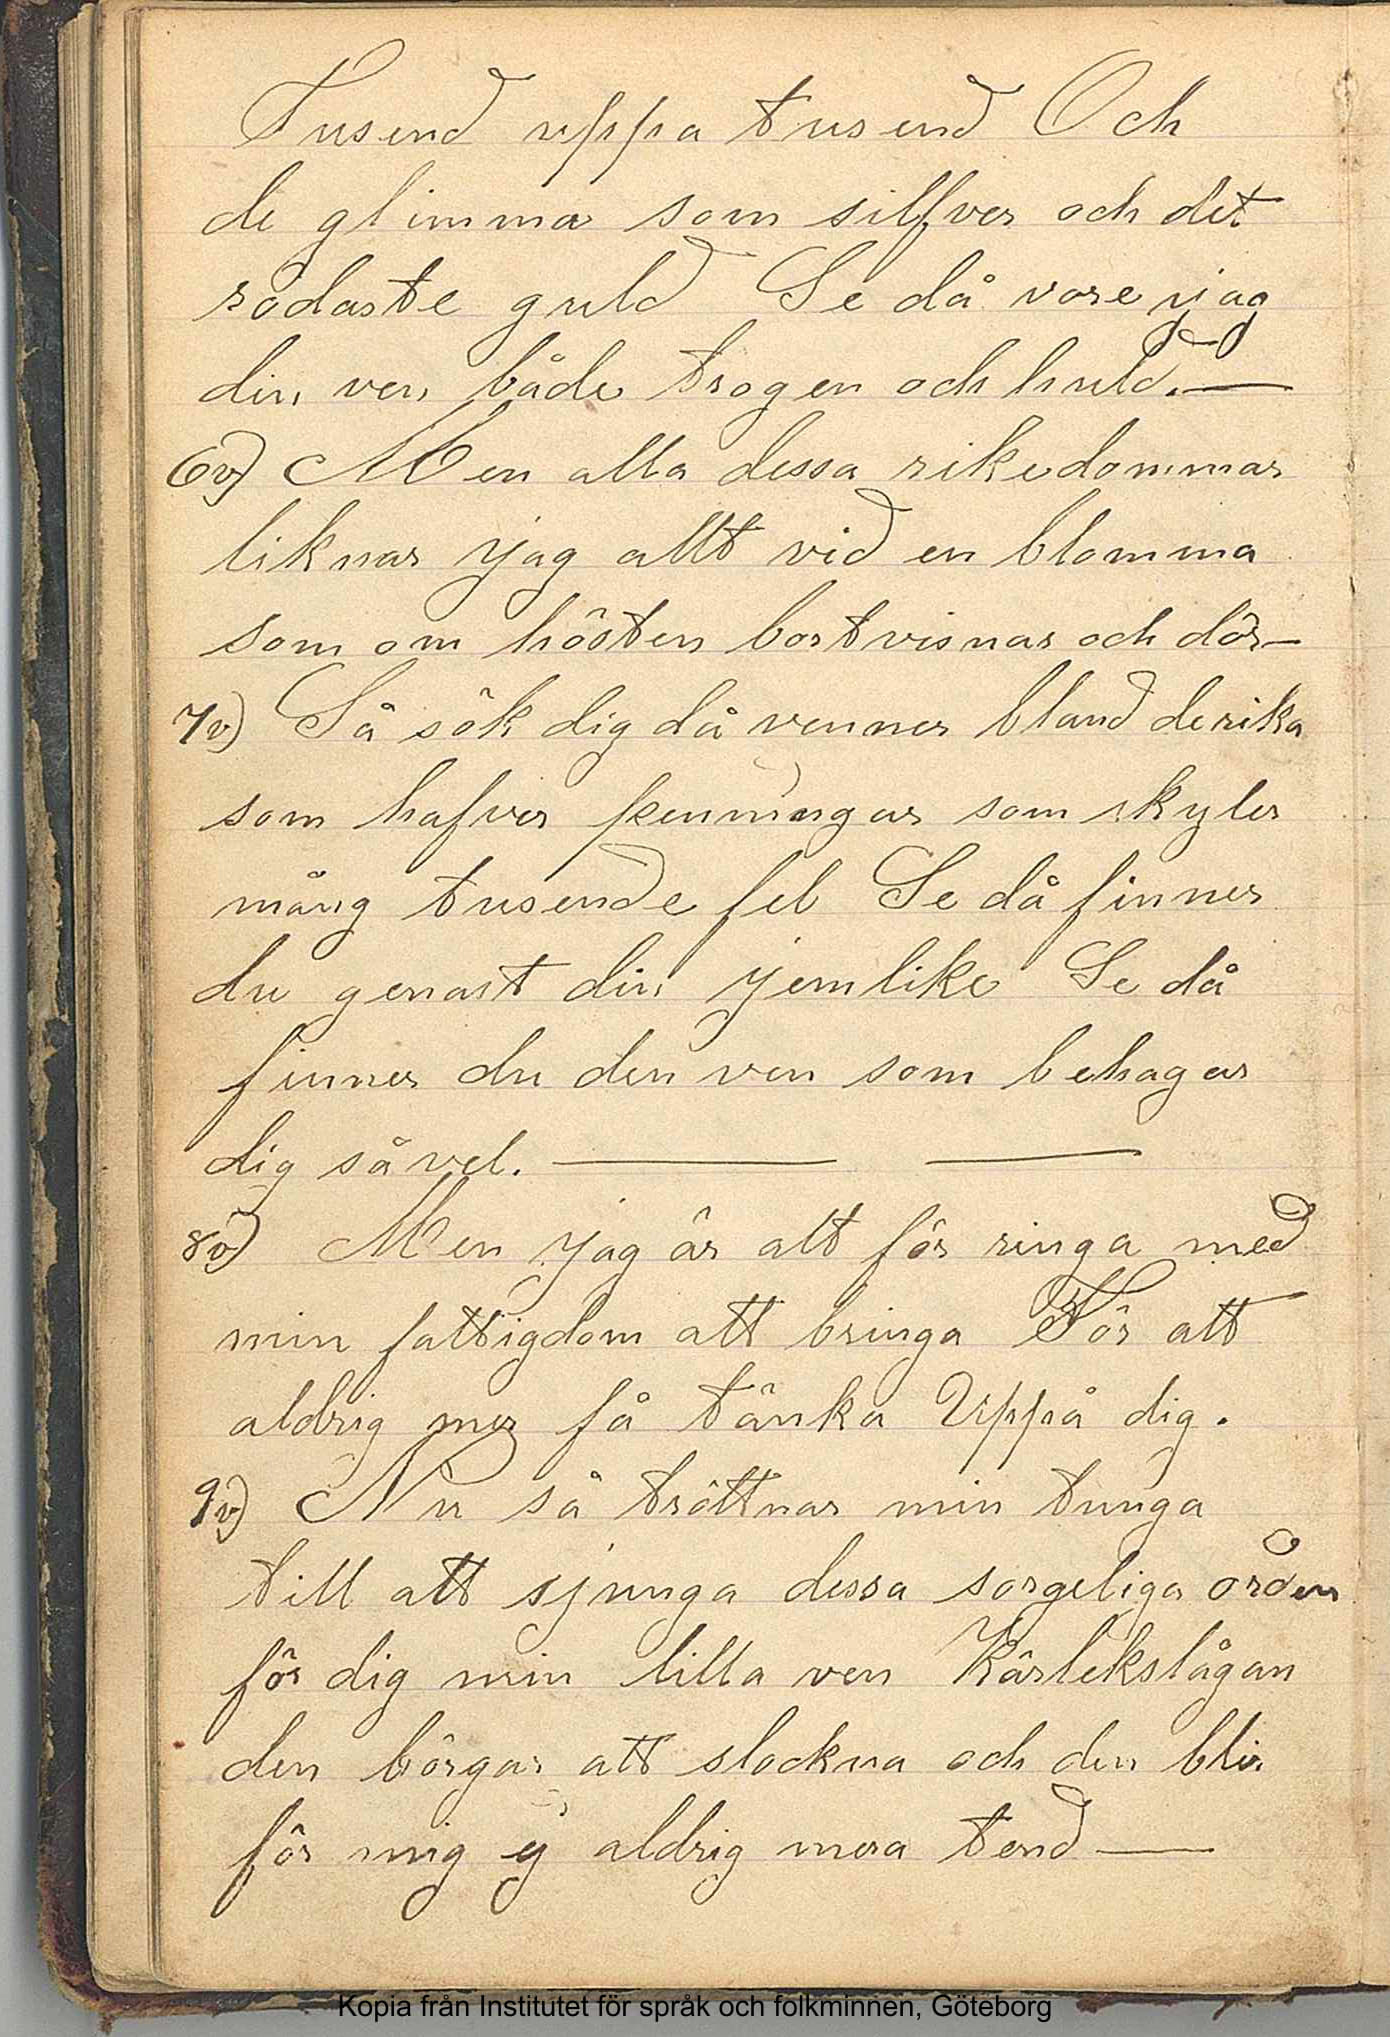 Tusend uppa tusend Och
de glimma som silfver och det
rödaste guld Se då vore jag
din ven både trogen och huld. —
6v) Men alla dessa rikedommar
liknar jag allt vid en blomma
som om hösten bortvisnar och dör —
7v) Så sök dig då venner bland de rika
som hafver penningar som skyler
mång tusende fel Se då finner
du genast din jemlike Se då
finner du den ven som behagar
dig så vel. — —
8v) Men jag är alt för ringa med
min fattigdom att bringa För att
aldrig mer få tänka Uppå dig.
9v) Nu så tröttnar min tunga
till att sjunga dessa sorgeliga orden
för dig min lilla ven Kärlekslågan
den börgar att slockna och den blir
för mig ej aldrig mera tend —
Kopia från Institutet för språk och folkminnen, Göteborg